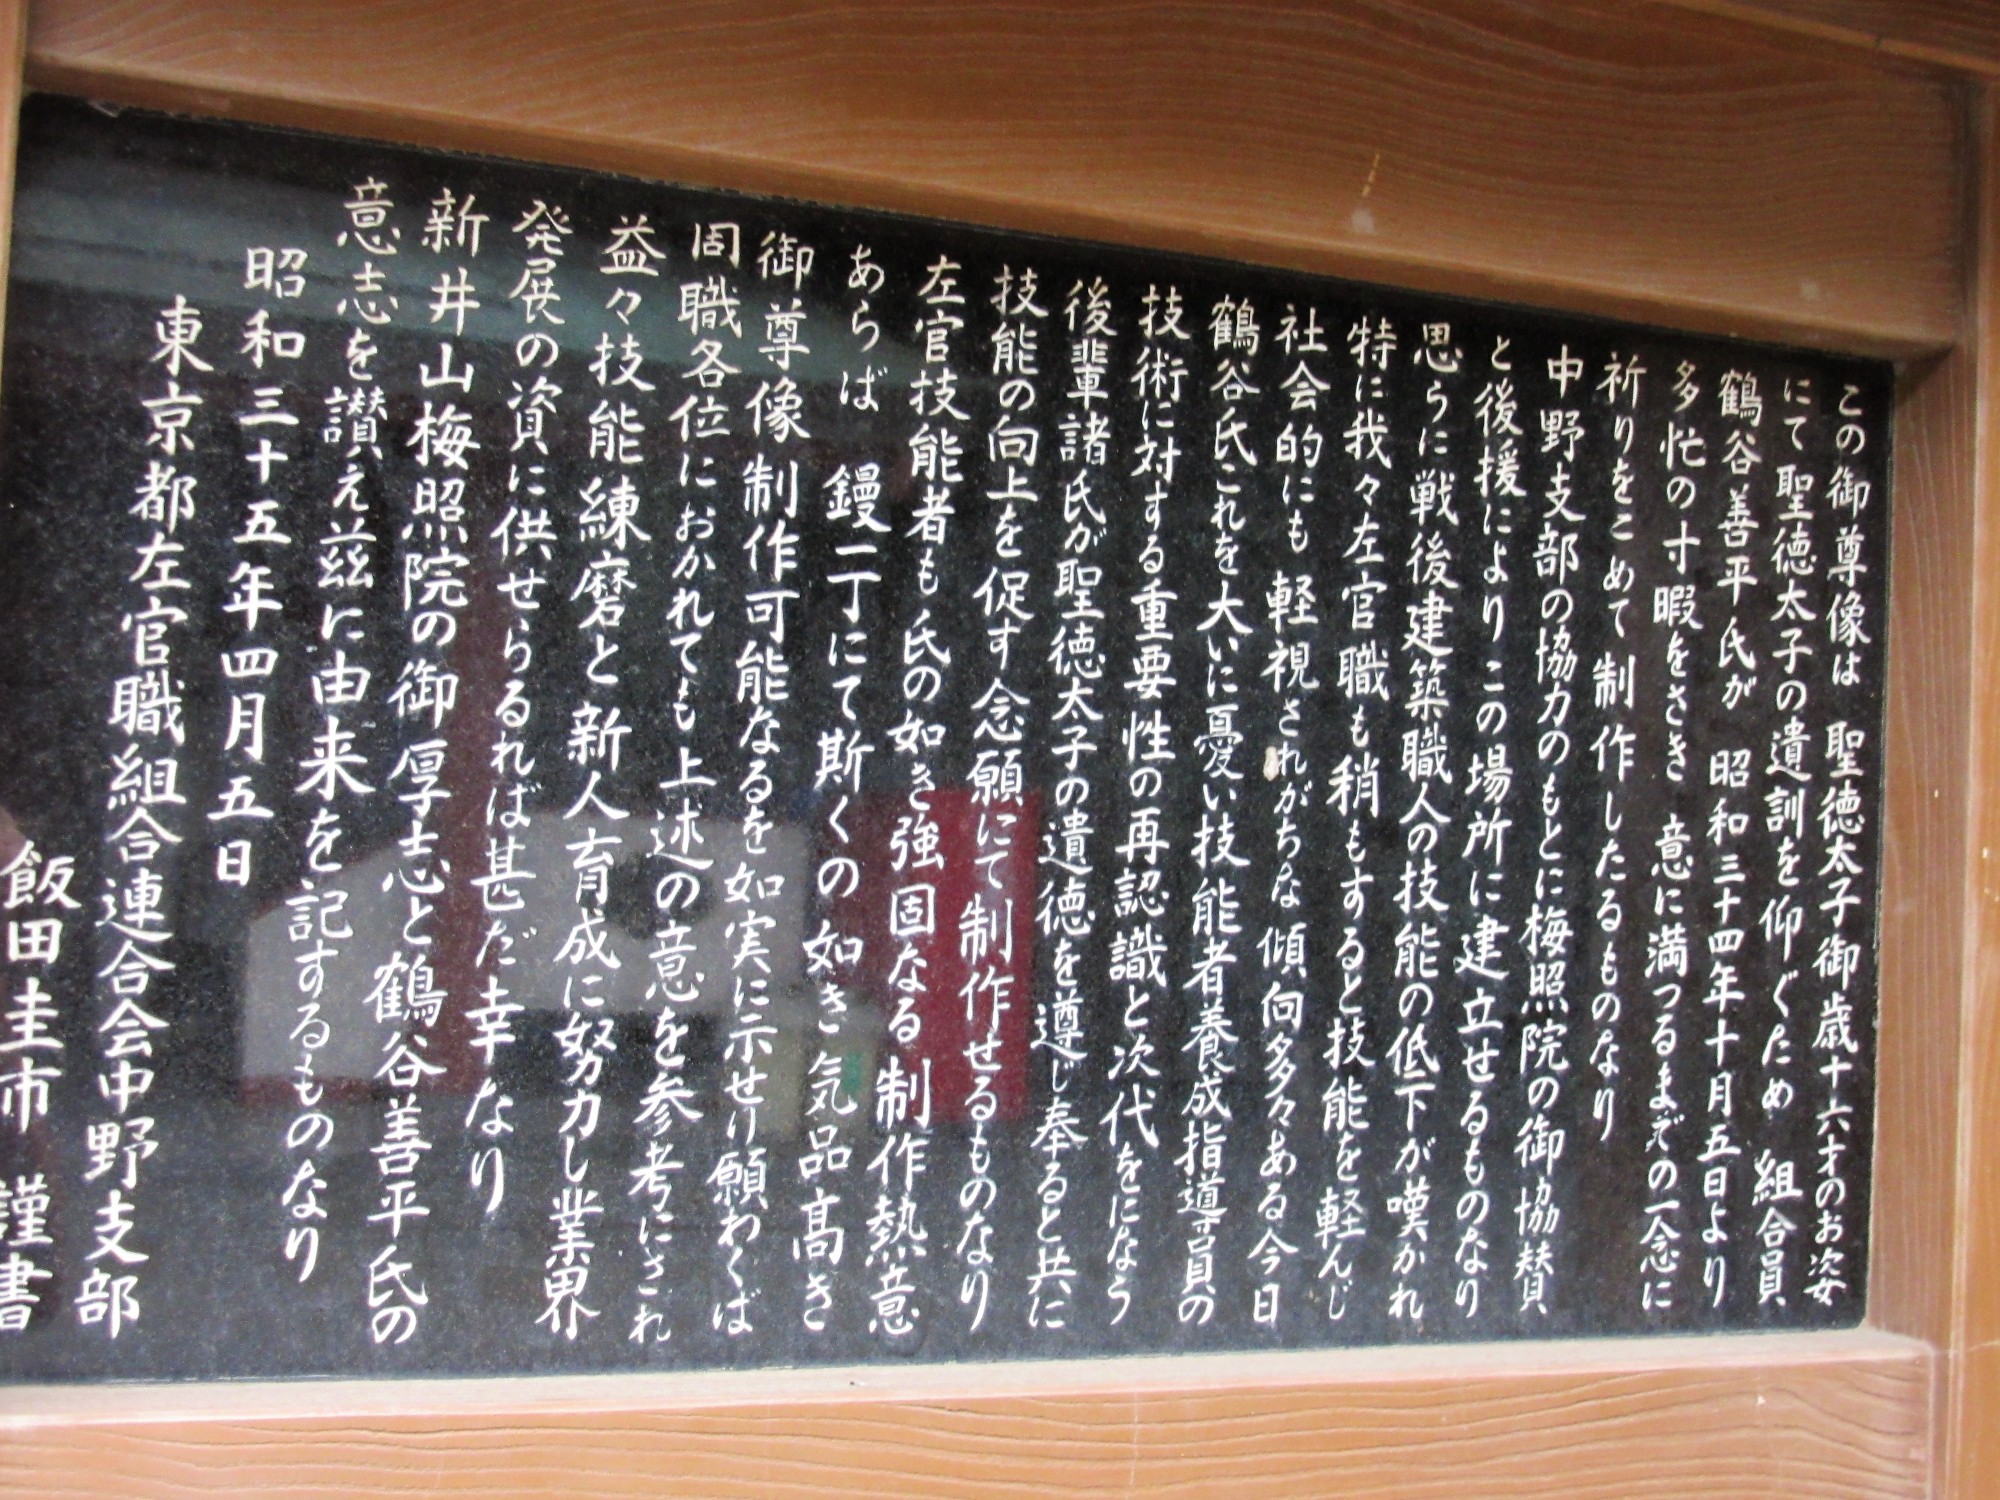 この御尊像は 聖徳太子御歳十六才のお姿
にて聖徳太子の遺訓を仰ぐため 組合員
鶴谷善平氏が 昭和三十四年十月五日より
多忙の寸暇をさき 意に満つるまでの一念に
祈りをこめて制作したるものなり
中野支部の協力のもとに梅照院の御協賛
と後援によりこの場所に建立せるものなり
思うに戦後建築職人の技能の低下が嘆かれ
特に我々左官職も稍もすると技能を軽んじ
社会的にも軽視されがちな傾向多々ある今日
鶴谷氏これを大いに憂い技能者養成指導員の
技術に対する重要性の再認識と次代をになう
後輩諸氏が聖徳太子の遺徳を遵じ奉ると共に
技能の向上を促す念願にて制作せるものなり
左官技能者も氏の如き強固なる制作熱意
あらば 鏝一丁にて斯くの如き気品高き
御尊像制作可能なるを如実に示せり願わくば
同職各位におかれても上述の意を参考にされ
益々技能練磨と新人育成に努力し業界
発展の資に供せらるれば甚だ幸なり
新井山梅照院の御厚志と鶴谷善平氏の
意志を讃え茲に由来を記するものなり
昭和三十五年四月五日
東京都左官職組合連合会中野支部
飯田圭市 謹書